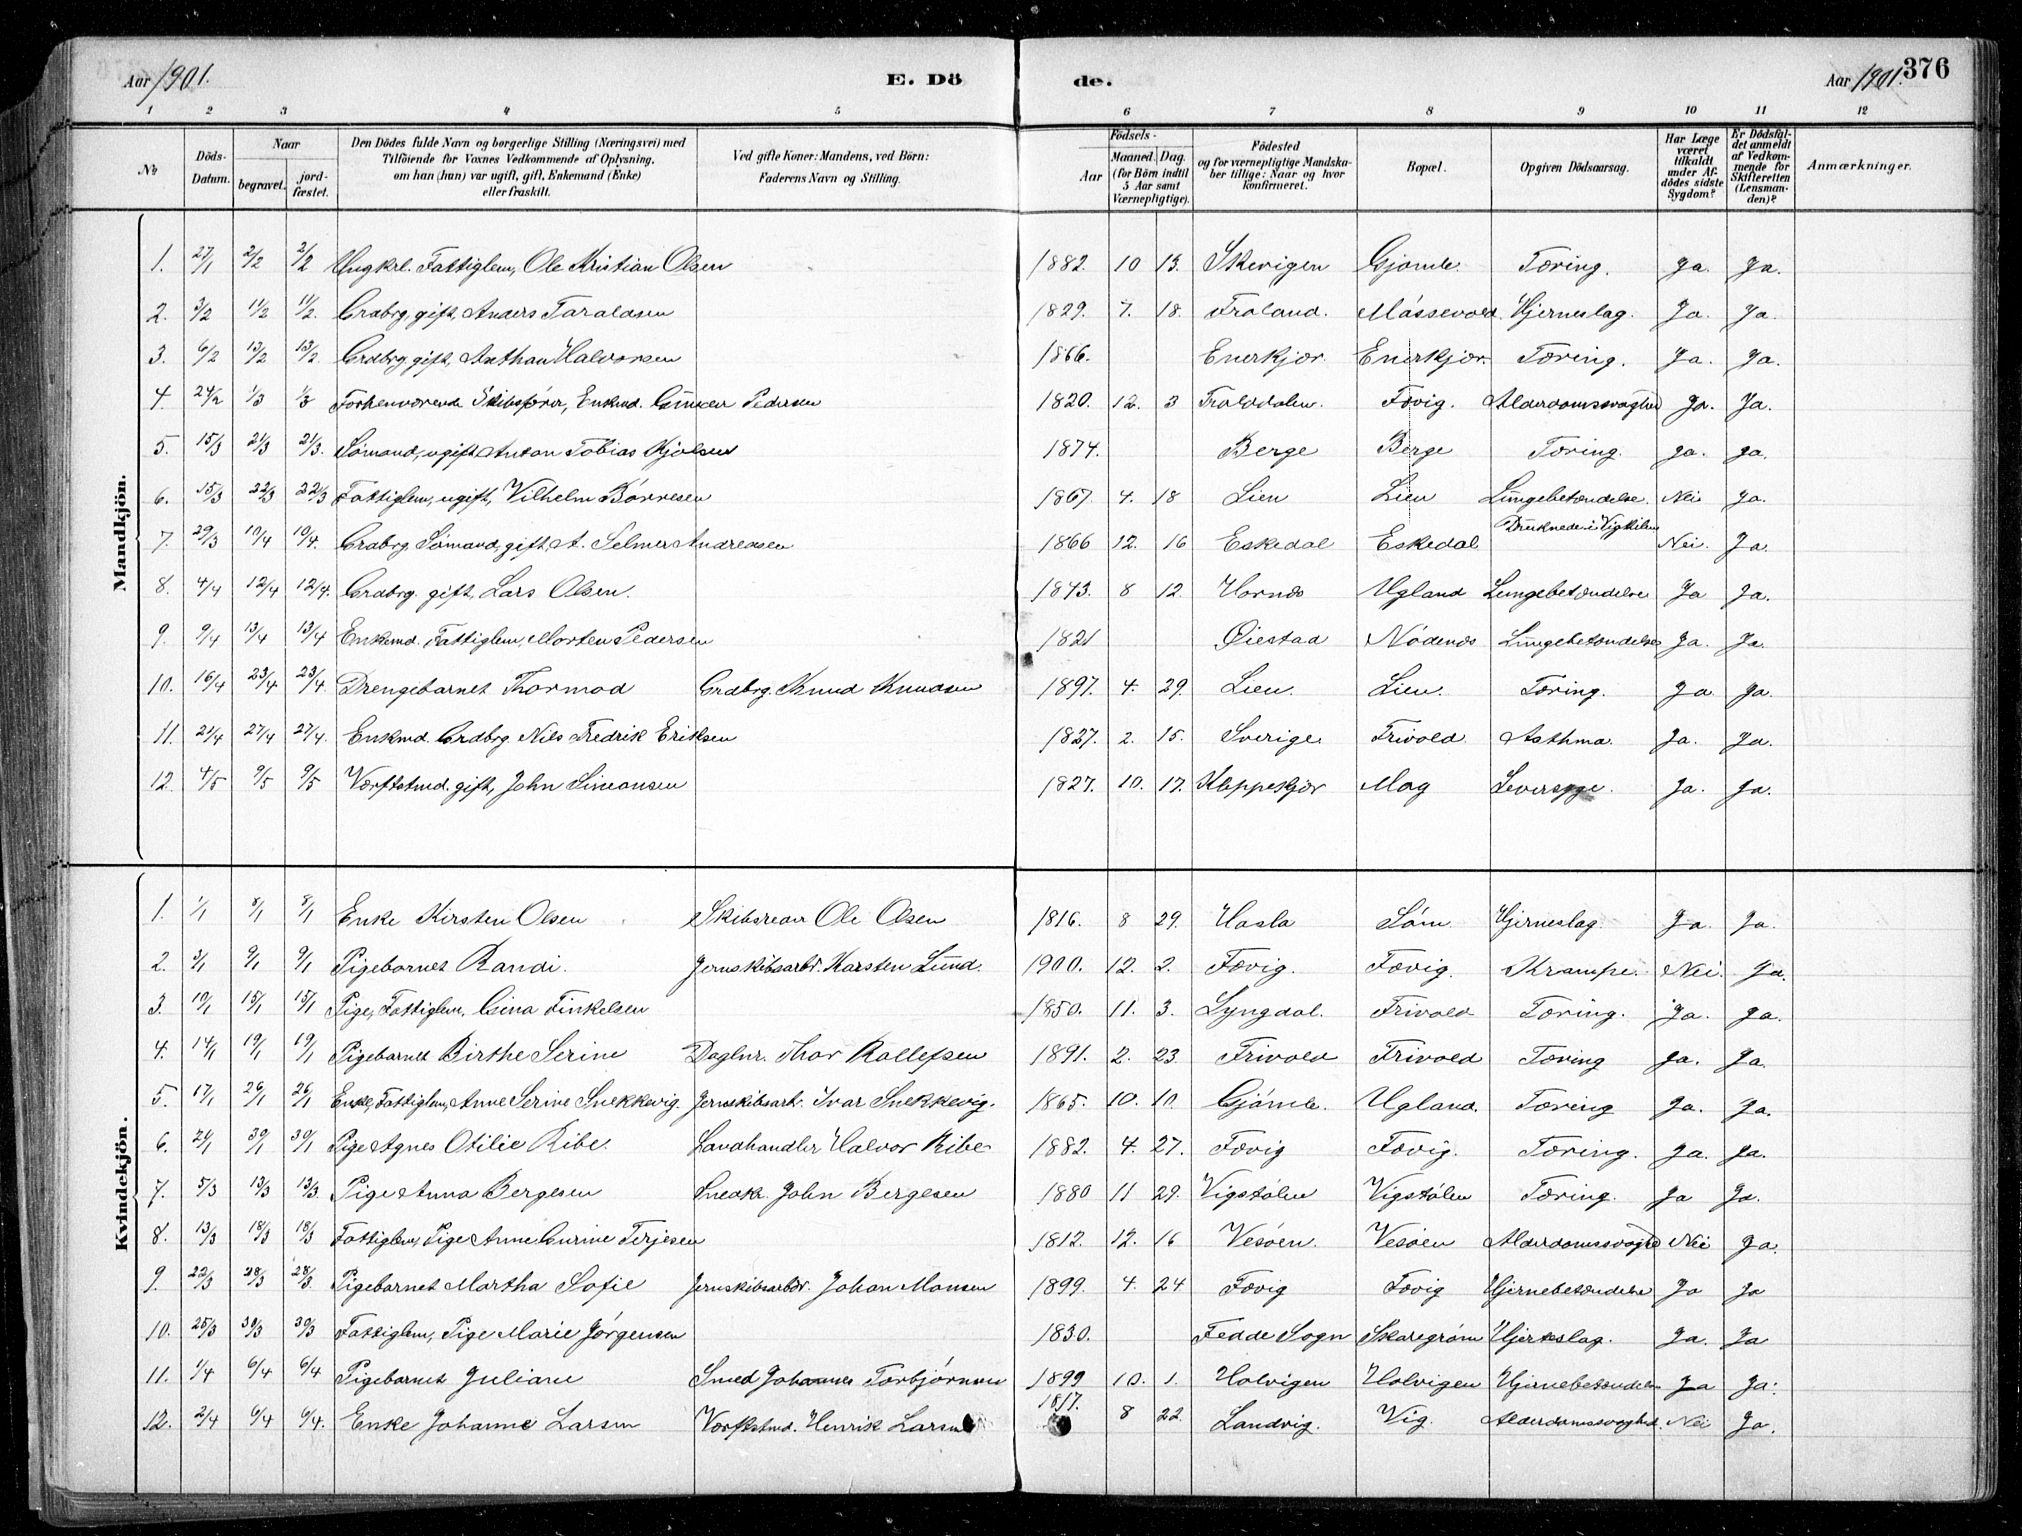 Aar 1901. E. Dö de. Aar 1901. 376
1 2 3 4 5 6 7 8 9 10 11 12
No Döds-Datum. Naar begravet. jord-fæstet. Den Dödes fulde Navn og borgerlige Stilling (Næringsvei) med Tilföiende for Voxnes Vedkommende af Oplysning, om han (hun) var ugift, gift, Enkemand (Enke) eller fraskilt. Ved gifte Koner: Mandens, ved Börn: Faderens Navn og Stilling. Födsels- Aar Maaned. Dag. (for Börn indtil 5 Aar samt Værnepligtige). Födested og for værnepligtige Mandskaber tillige: Naar og hvor konfirmeret. Bopæl. Opgiven Dödsaarsag. Har Læge været tilkaldt under Afdödes sidste Sygdom? Er Dödsfaldet anmeldt af Vedkommende for Skifteretten (Lensmanden)? Anmærkninger.
Mandkjön.
1. 27/1 2/2 2/2 Ungkrl. Fattiglem, Ole Kristian Olsen 1882. 10 13. Skevigen Gjömle. Tæring. Ja. Ja.
2. 3/2 11/2 11/2. Grdbrg, gift, Anders Taraldsen 1829. 7. 18. Froland. Måssevold. Hjerneslag. Ja. Ja.
3. 6/2 13/2 13/2. Grdbrg gift, Anthon Halvorsen 1866. Enerkjær. Enerkjær. Tæring. Ja. Ja.
4. 24/2 1/3 1/3 Forhenværende Skibsfører, Enkmd. Gunner Pedersen 1820. 12. 3 Trolddalen. Fævig. Alderdomssvaghed Ja. Ja.
5. 15/3 21/3 21/3. Sømand, ugift, Anton Tobias Kjølsen 1874. Berge Berge Tæring. Ja. Ja.
6. 15/3 22/3 22/3 Fattiglem, ugift, Vilhelm Børresen 1867. 4. 18 Lien Lien Lungebetændelse. Nei Ja.
7. 29/3 10/4 10/4. Grdbrg Sømand, gift, A. Selmer Andreasen 1866 12. 16 Eskedal Eskedal Druknede i Vigkilen Nei. Ja.
8. 4/4 12/4 12/4. Grdbrg. gift, Lars Olsen. 1843. 8 12. Hornes Ugland Lungebetændelse Ja Ja.
9. 9/4 13/4 13/4 Enkemd. Fattiglem, Morten Pedersen 1821 Øiestad Nødenes Lungebetændelse Ja. Ja.
10. 16/4 23/4 23/4. Drengebarnet Thormod Grdbrg. Knud Knudsen 1897. 4. 29. Lien. Lien. Tæring. Ja Ja.
11. 21/4 27/4 27/4. Enkmd. Grdbrg. Nils Fredrik Eriksen 1827. 2. 15. Sverige. Frivold. Asthma. Ja. Ja.
12. 4/5 9/5 9/5 Værftstmd. gift, John Simonsen 1827. 10. 17. Kleppekjær Moy Leversyge. Ja. Ja.
Kvindekjön.
1. 1/1 8/1 8/1 Enke Kirsten Olsen Skibsreder Ole Olsen 1816. 8 29. Hasla Søm Hjerneslag. Ja. Ja.
2. 3/1 9/1 9/1 Pigebarnet Randi. Jernskibsarbdr. Karsten Lund. 1900. 12. 2. Fævig. Fævig. Krampe. Nei Ja.
3. 10/1 15/1 15/1 Pige, Fattiglem, Gina Finkelsen 1850. 11. 3. Lyngdal. Frivold Tæring. Ja. Ja.
4. 14/1 19/1 19/1 Pigebarnet Birthe Serine Daglnr. Thor Rollefsen 1891. 2. 23 Frivold Frivold Tæring Ja. Ja.
5. 17/1 26/1 26/1 Enke, Fattiglem, Anne Serine Snekkevig. Jernskibsarb. Ivar Snekkevig. 1865. 10. 10. Gjömle. Ugland. Tæring Ja. Ja.
6. 24/1 30/1 30/1 Pige Agnes Otilie Ribe. Landhandler Halvor Ribe 1882. 4. 27. Fævig Fævig. Tæring. Ja. Ja.
7. 5/3 13/3 13/3. Pige Anna Bergesen Snedkr. John Bergesen 1880 11 29. Vigstølen Vigstølen Tæring. Ja Ja.
8. 13/3 18/3 18/3 Fattiglem, Pige Anne Gurine Terjesen 1812. 12. 16 Vesøen. Vesøen Alderdomssvaghd Nei Ja.
9. 22/3 28/3 28/3. Pigebarnet Martha Sofie Jernskibsarbdr. Johan Monsen 1899. 4. 24 Fævig Fævig Hjernebetændelse Ja Ja
10. 25/3 30/3 30/3 Fattiglem, Pige Marie Jørgensen 1830. Fedde Sogn Skaregrøm Hjerteslag. Ja. Ja
11. 1/4 6/4 6/4 Pigebarnet Juliane Smed Johannes Torbjørnsen 1899 10. 1. Holvigen Holvigen Hjernebetændelse Ja Ja.
12. 2/4 6/4 6/4. Enke Johanne Larsen Værftstmd. Henrik Larsen 1817. 8 22. Landvig. Vig. Alderdomssvaghd. Nei Ja.